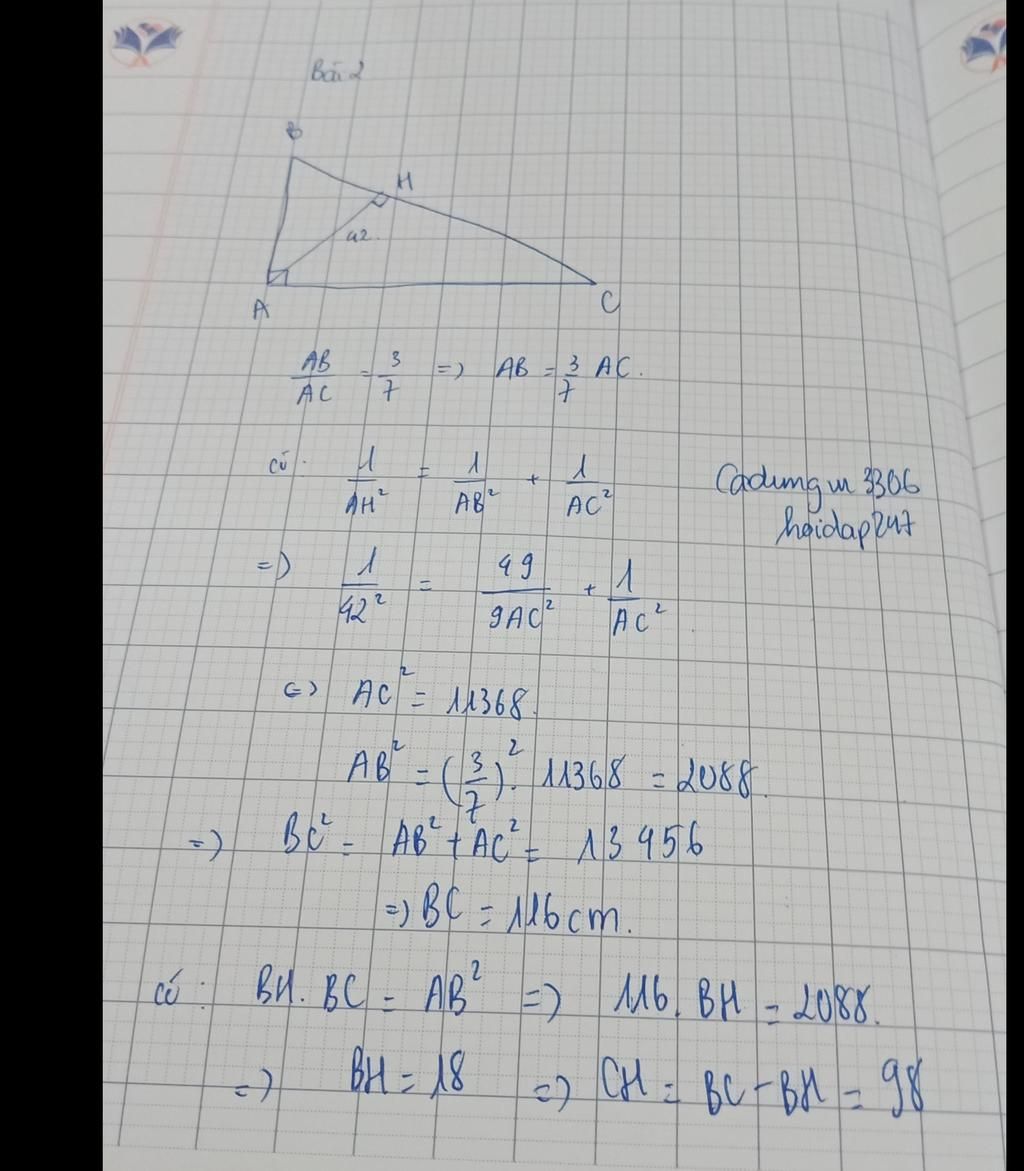 Bài 2
B
H
42
A
C
AB/AC = 3/7 => AB = 3/7 AC.
có: 1/AH² = 1/AB² + 1/AC²
Cadungvn3306
hoidap247
=> 1/42² = 49/9AC² + 1/AC²
<=> AC² = 11368.
AB² = (3/7)². 11368 = 2088.
=> BC² = AB² + AC² = 13456
=> BC = 116cm.
có: BH. BC = AB² => 116. BH = 2088.
=> BH = 18 => CH = BC - BH = 98